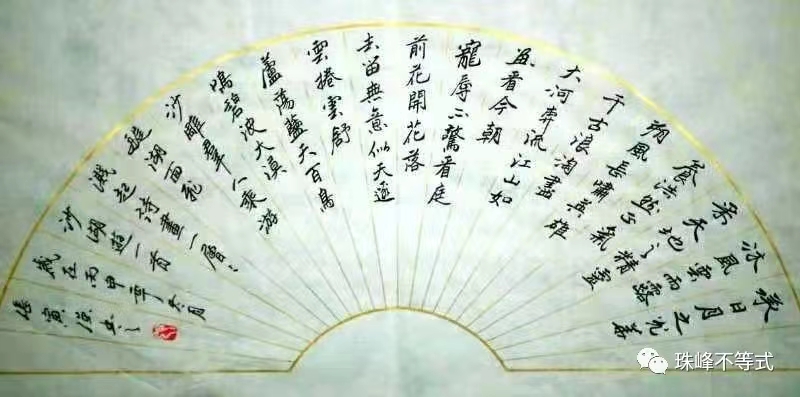 承日月之光華
沐風雲雨露
采天地之精靈
養浩然之氣
朔風長嘯
千古浪淘盡英雄
大河奔流江山如
畫看今朝
寵辱不驚看庭
前花開花落
去留無意似天邊
雲捲雲舒
蘆蕩藍天百鳥
鳴碧波大漠
沙雕群人乘游
艇湖面飛
濺起詩畫一層々
沙湖遊一首
歲在丙申年冬月
寅
珠峰不等式